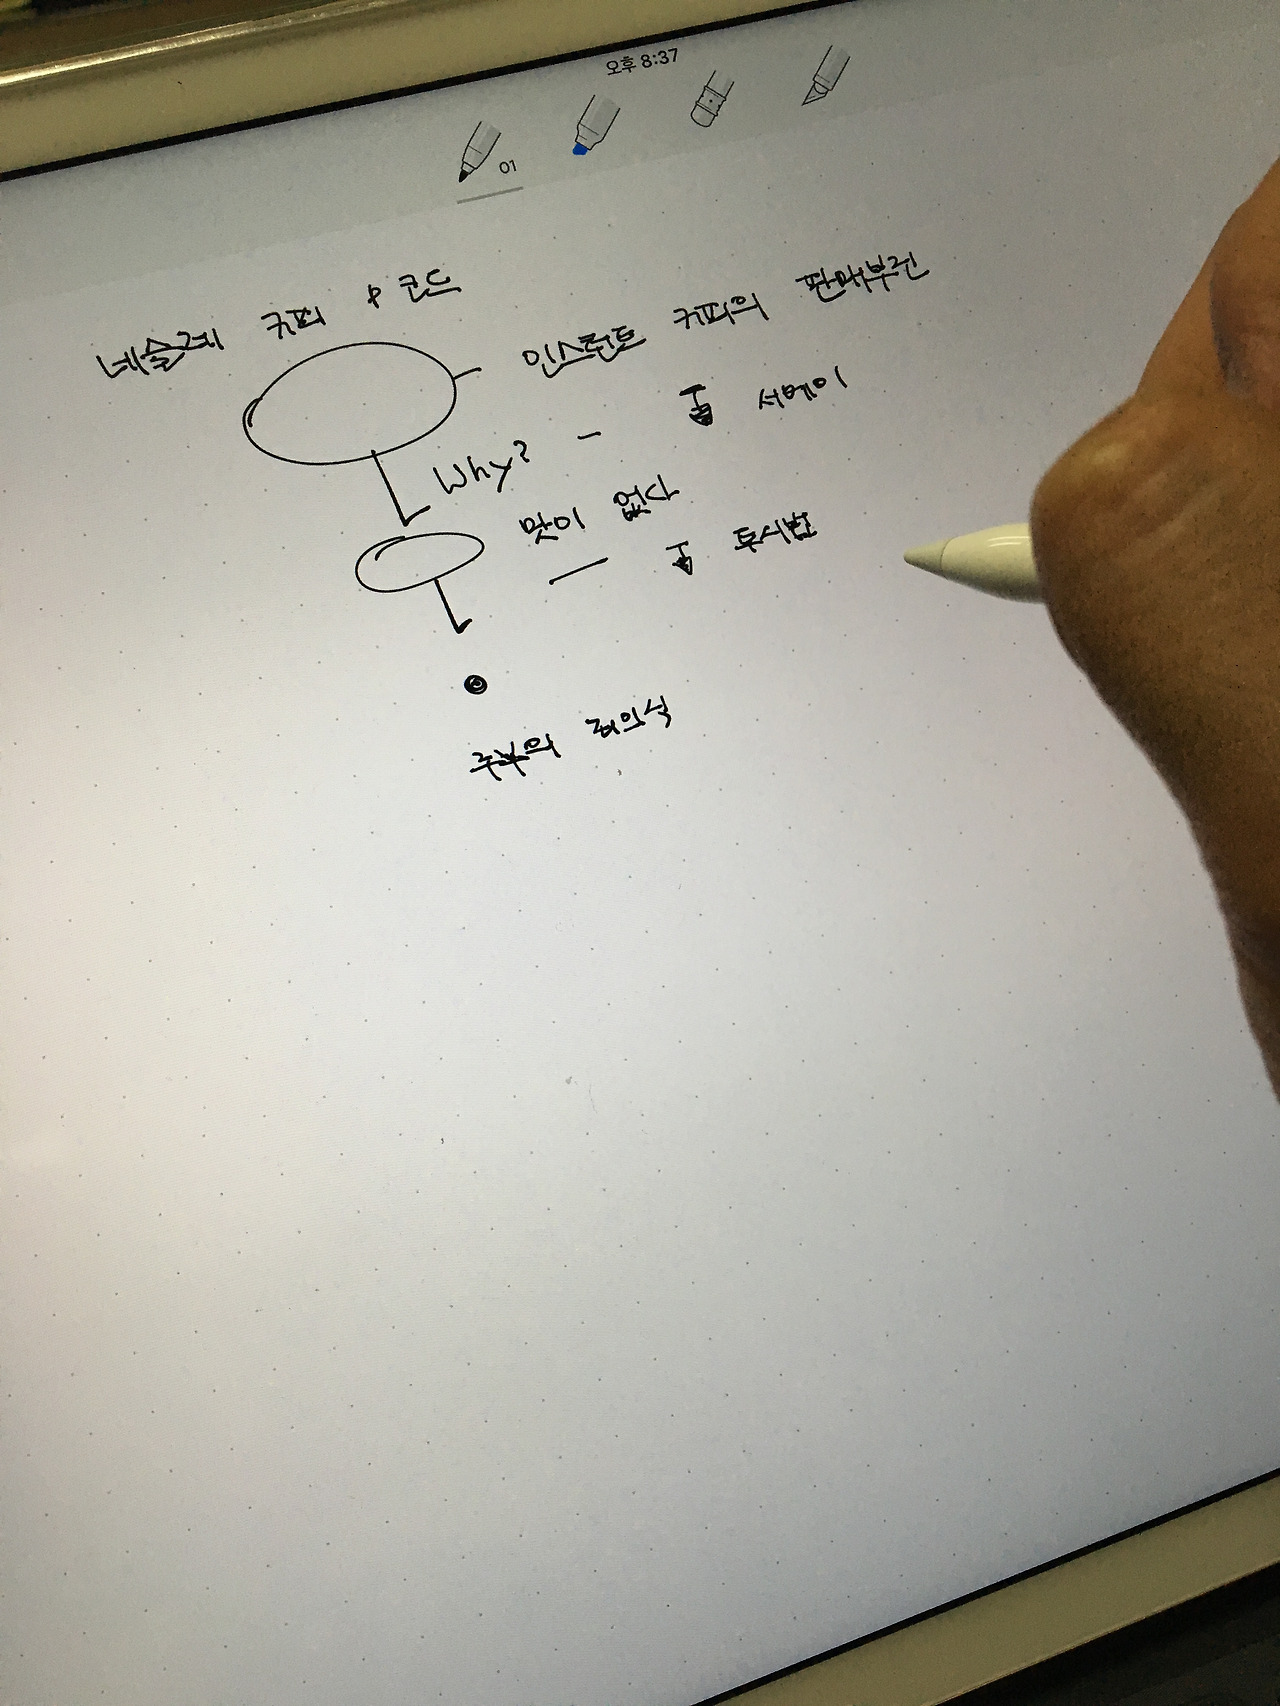 오후 8:37
01
네슬레 커피 & 코드
인스턴트 커피의 판매부진
Why? - 서베이
맛이 없다
투사법
주부의 죄의식